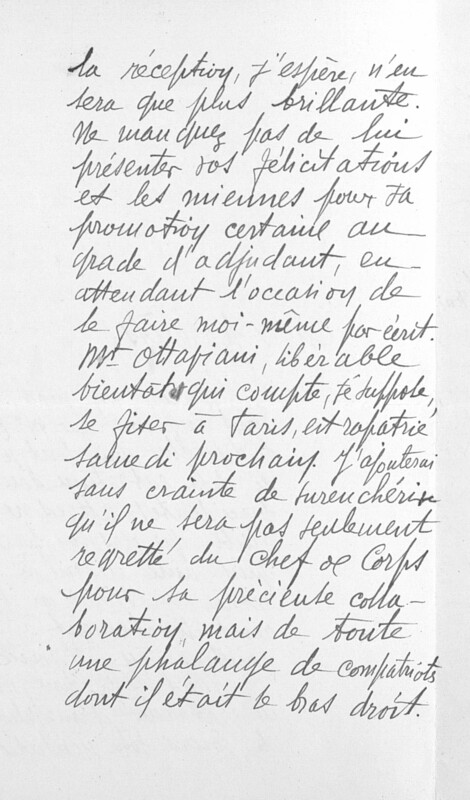 la réception, j'espère, n'en
sera que plus brillante.
Ne manquez pas de lui
présenter vos félicitations
et les miennes pour sa
promotion certaine au
grade d'adjudant, en
attendant l'occasion de
le faire moi-même par écrit.
Mr Ottapiani, libérable
bientôt qui compte, je suppose,
se fixer à Paris, est rapatrié
samedi prochain. J'ajouterai
sans crainte de surenchérir
qu'il ne sera pas seulement
regretté du Chef de Corps
pour sa précieuse colla-
boration, mais de toute
une phalange de compatriots
dont il était le bras droit.